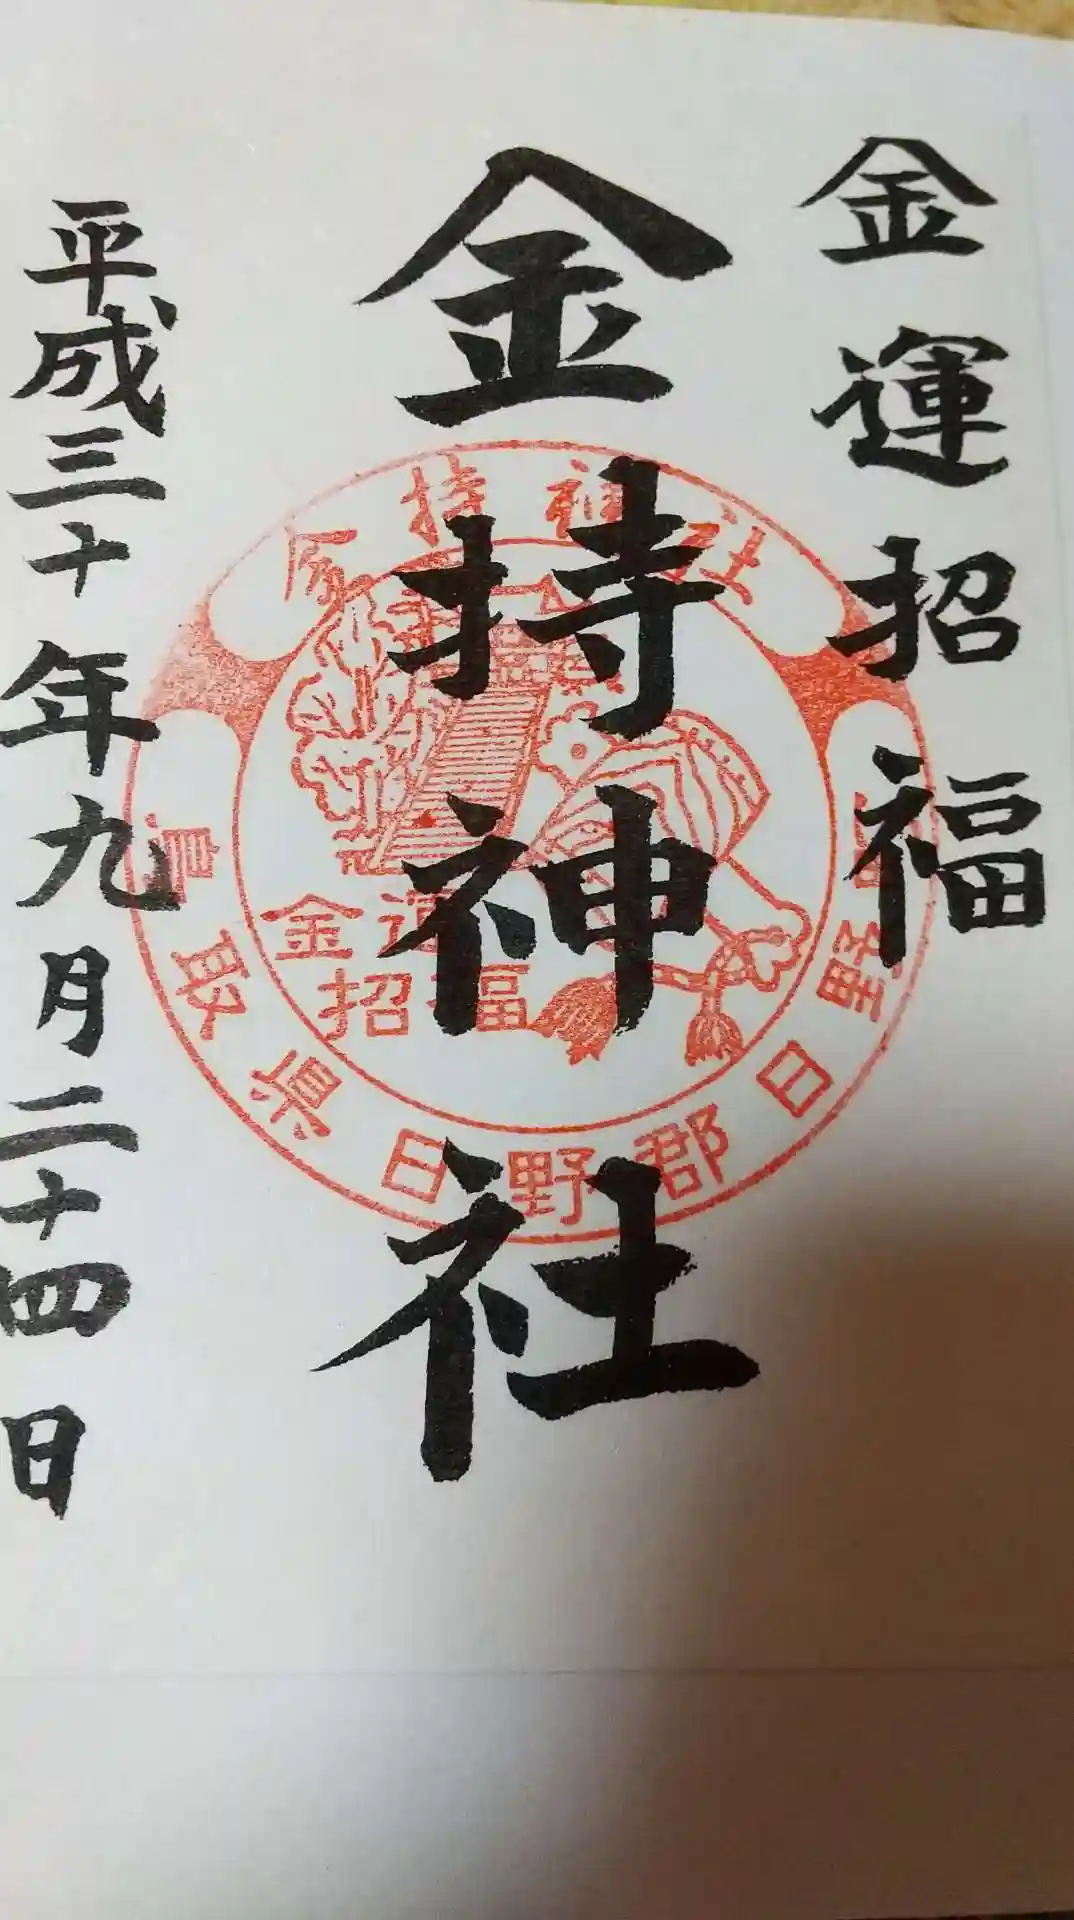 金運招福
金持神社
平成三十年九月二十四日
金持神社
鳥取県日野郡日野町
金運
招福